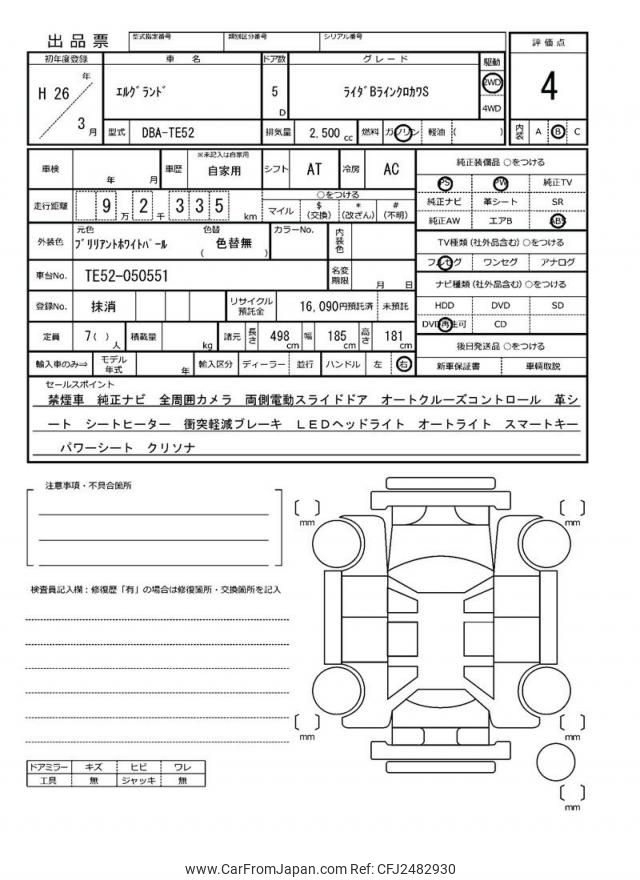 出品票
型式指定番号 類別区分番号 シリアル番号
評価点
初年度登録 車 名 ドア数 グレード 駆動
H 26 年 3 月
エルグランド 5 D ライダBラインクロカワS 2WD 4WD
4
型式 DBA-TE52 排気量 2,500 cc 燃料 ガソリン 軽油 ( )
内装 A B C
車検 年 月 車歴 ※未記入は自家用 自家用 シフト AT 冷房 AC
純正装備品 ○をつける
PS PW 純正TV
純正ナビ 革シート SR
純正AW エアB ABS
走行距離 9 万 2 千 3 3 5 km
○をつける
マイル $ (交換) * (改ざん) # (不明)
外装色 元色 ブリリアントホワイトパール 色替 ( 色替無 ) カラーNo. 内装色
TV種類 (社外品含む) ○をつける
フルセグ ワンセグ アナログ
車台No. TE52-050551 名変期限 月 日
ナビ種類 (社外品含む) ○をつける
HDD DVD SD
DVD再生可 CD
登録No. 抹消 リサイクル預託金 16,090円預託済 未預託
定員 7( ) 人 積載量 kg 諸元 長さ 498 cm 幅 185 cm 高さ 181 cm
後日発送品 ○をつける
新車保証書 車輌取説
輸入車のみ⇒ モデル年式 年 輸入区分 ディーラー 並行 ハンドル 左 右
セールスポイント
禁煙車 純正ナビ 全周囲カメラ 両側電動スライドドア オートクルーズコントロール 革シ
ート シートヒーター 衝突軽減ブレーキ LEDヘッドライト オートライト スマートキー
パワーシート クリソナ
注意事項・不具合箇所
検査員記入欄：修復歴「有」の場合は修復箇所・交換箇所を記入
[ ] mm
[ ] mm
[ ] mm
[ ] mm
[ ] mm
ドアミラー キズ ヒビ ワレ
工具 無 ジャッキ 無
www.CarFromJapan.com Ref: CFJ2482930